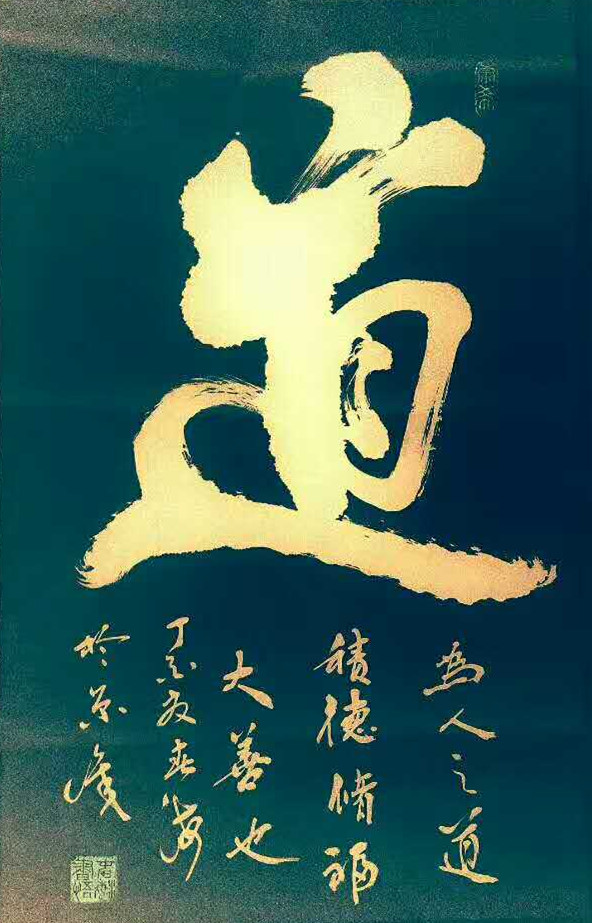 道
為人之道
積德修福
大善也
丁亥春海
於京